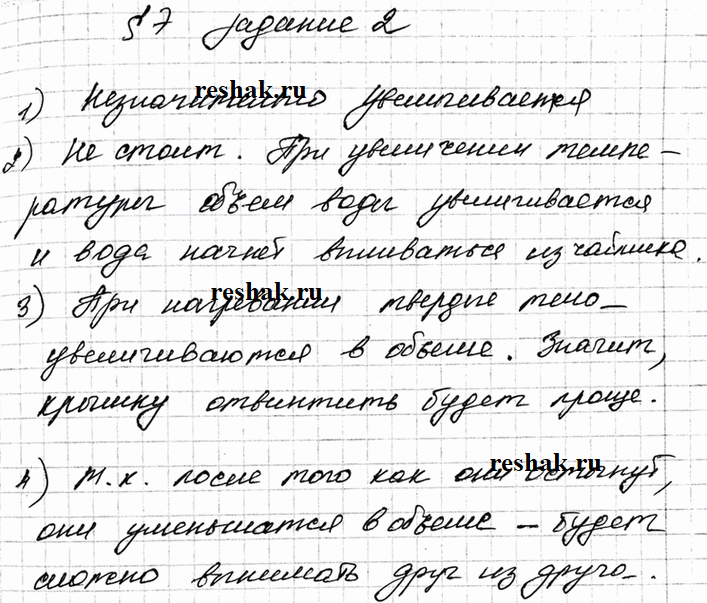 §7 задание 2
1) Незначительно увеличивается
2) Не стоит. При увеличении темпе-
ратуры объем воды увеличивается
и вода начнёт вливаться из чайника.
3) При нагревании твердые тела
увеличиваются в объеме. Значит,
крышку отвинтить будет проще.
4) т.к. после того как они остынут,
они уменьшатся в объеме – будет
сложно вынимать друг из друга.
reshak.ru
reshak.ru
reshak.ru